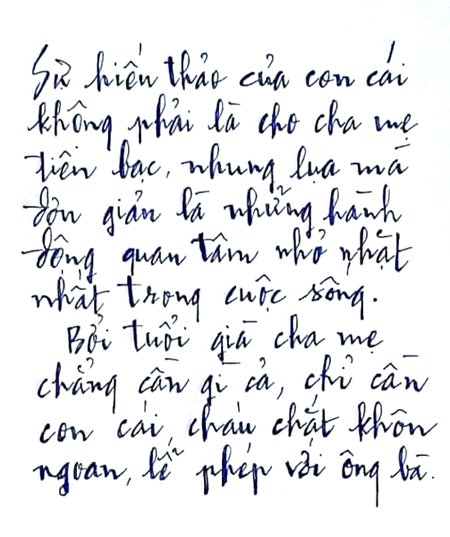 Sự hiếu thảo của con cái
không phải là cho cha mẹ
tiền bạc, nhung lụa mà
đơn giản là những hành
động quan tâm nhỏ nhặt
nhất trong cuộc sống.
Bởi tuổi già cha mẹ
chẳng cần gì cả, chỉ cần
con cái, cháu chắt khôn
ngoan, lễ phép với ông bà.